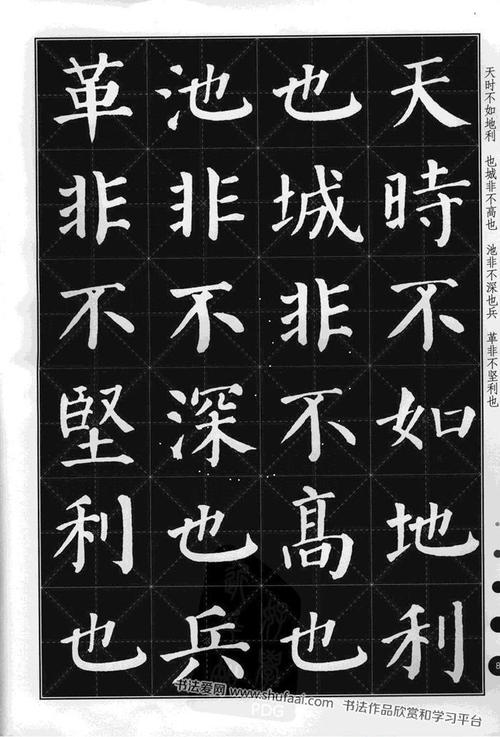 天時不如地利
也城非不高也
池非不深也兵
革非不堅利也
天时不如地利 也城非不高也 池非不深也兵 革非不坚利也
书法爱网 www.shufaai.com 书法作品欣赏和学习平台
PDG